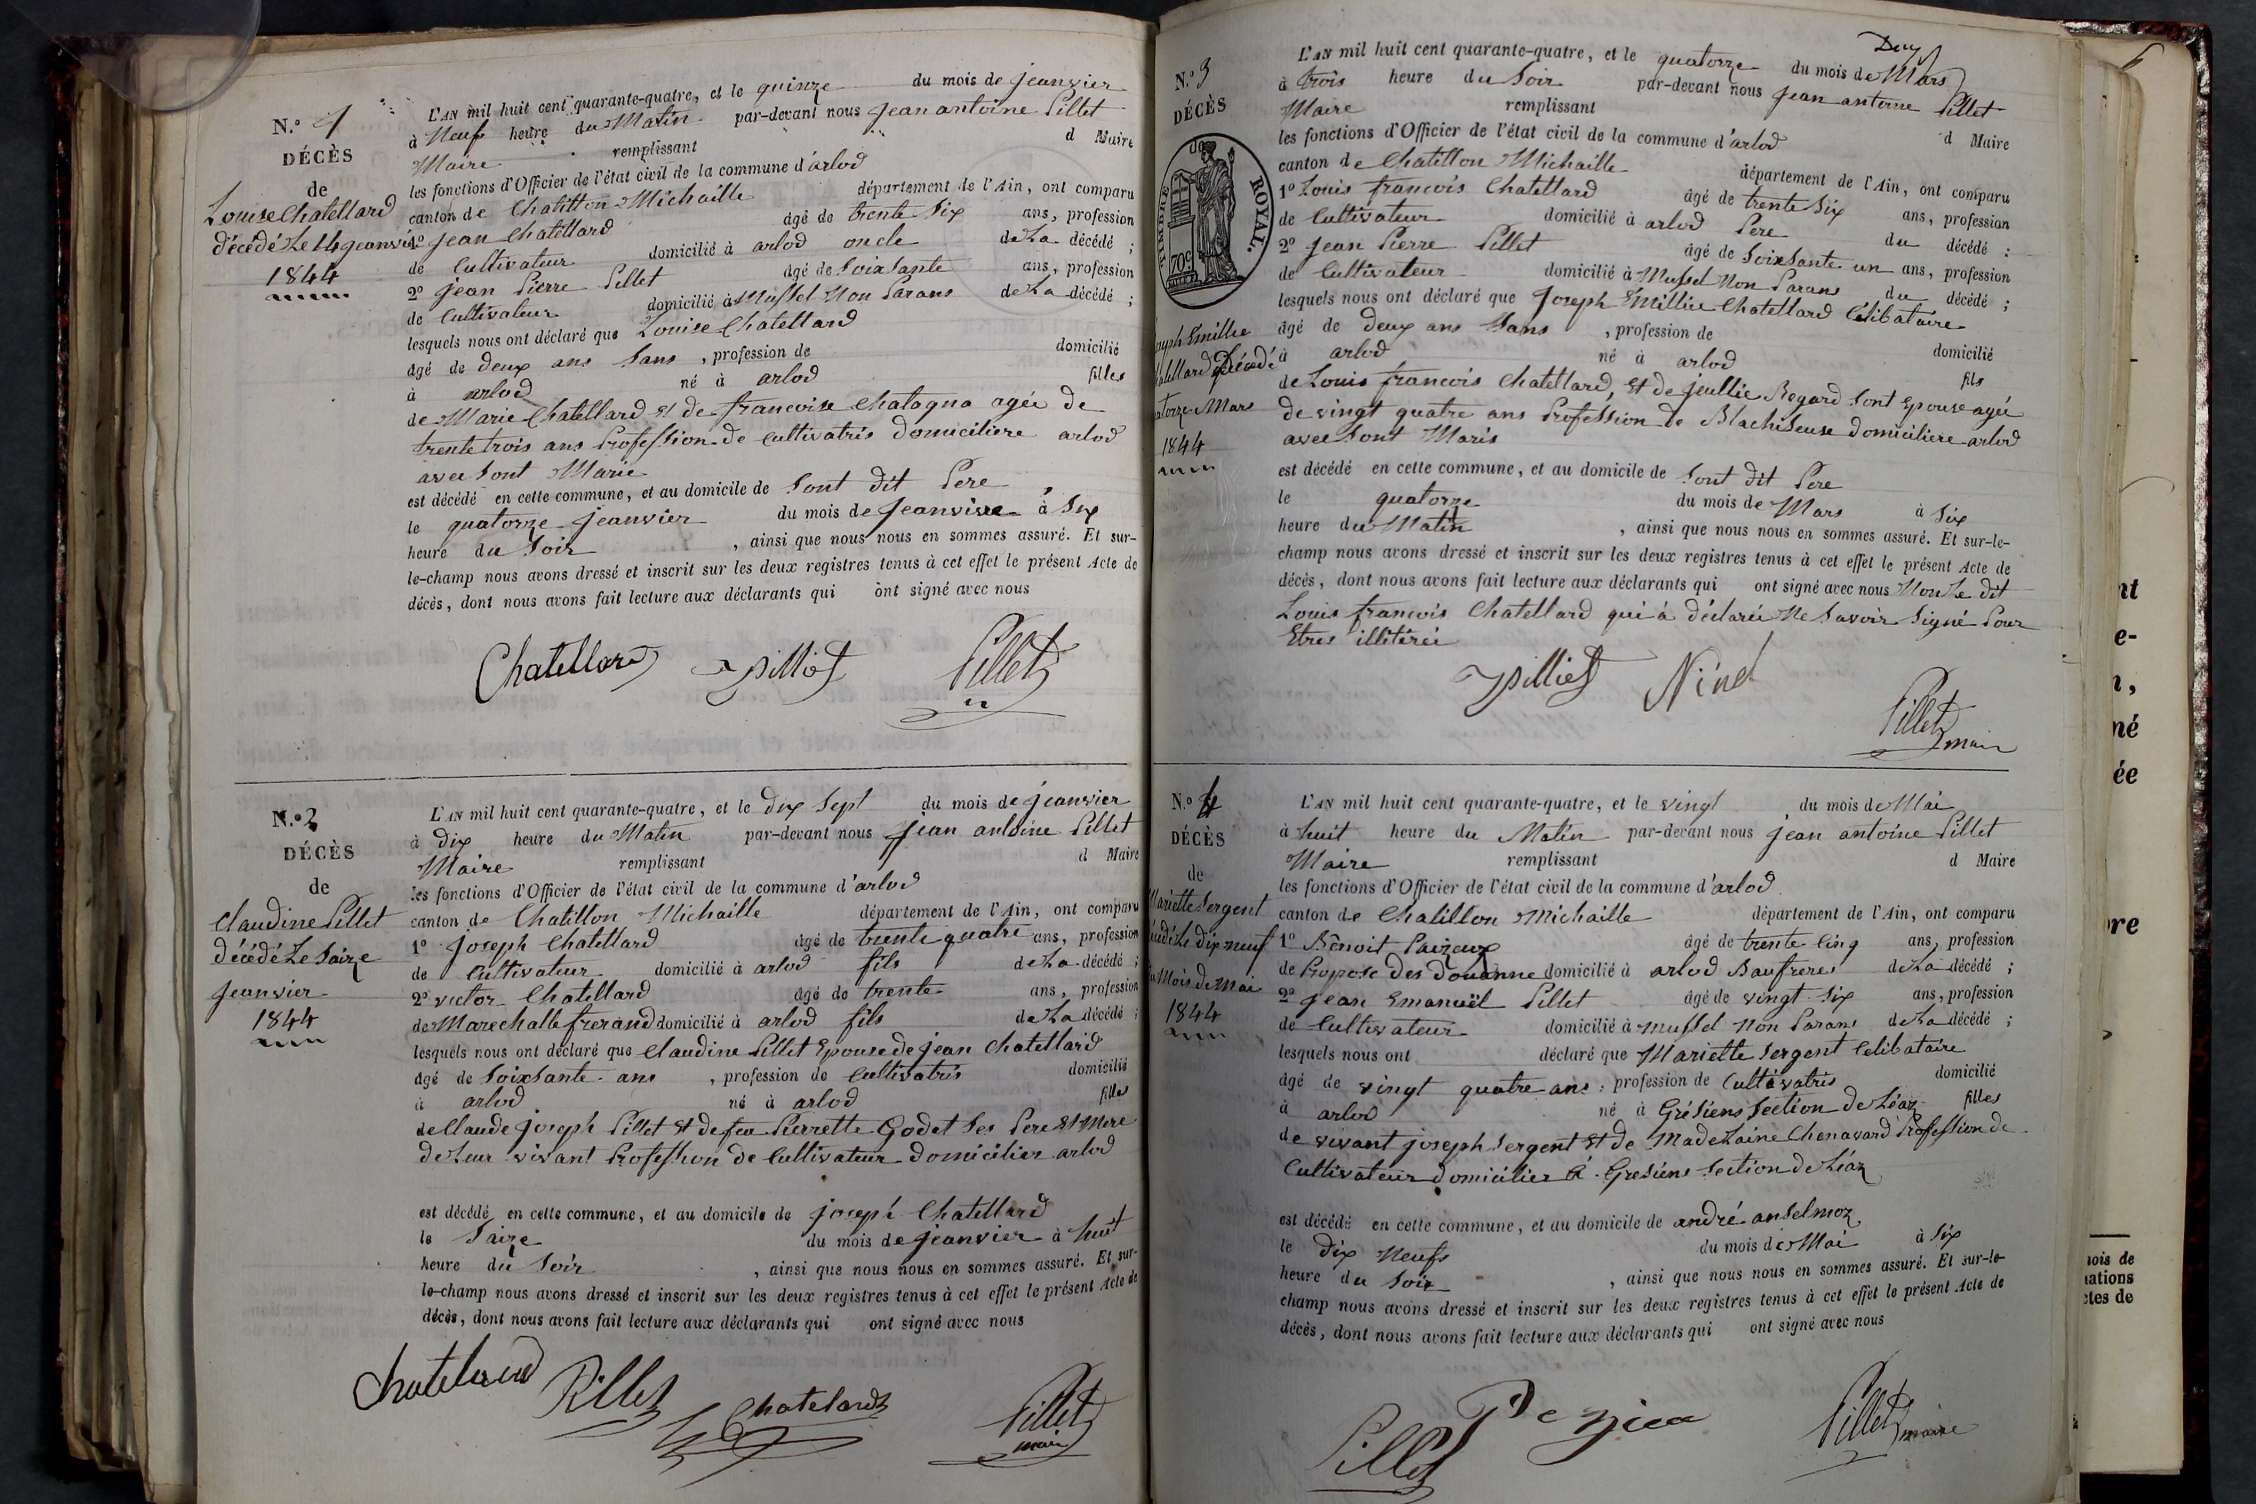 N.º 1
DÉCÈS
de
Louise Chatellard
décédé Le 14 jeanvier
1844
L'AN mil huit cent quarante-quatre, et le quinze du mois de jeanvier
à Neuf heure du Matin par-devant nous jean antoine Pillet
Maire remplissant d Maire
les fonctions d'Officier de l'état civil de la commune d'arlod
canton de Chatillon Michaille département de l'Ain, ont comparu
1º jean Chatellard âgé de trente Six ans, profession
de Cultivateur domicilié à arlod oncle de La décédé ;
2º jean Pierre Pillet âgé de Soixsante ans, profession
de Cultivateur domicilié à Mussel Non Parans de La décédé ;
lesquels nous ont déclaré que Louise Chatellard
âgé de deux ans Sans , profession de domicilié
à arlod né à arlod filles
de Marie Chatellard et de francoise Chatagna agée de
trente trois ans Profession de Cultivatris domiciliere arlod
avec Sont Marie
est décédé en cette commune, et au domicile de Sont dit Pere ,
le quatorze jeanvier du mois de jeanvier à Six
heure du Soir , ainsi que nous nous en sommes assuré. Et sur-
le-champ nous avons dressé et inscrit sur les deux registres tenus à cet effet le présent Acte de
décès, dont nous avons fait lecture aux déclarants qui ont signé avec nous
Chatellard Pilliet Pillet
N.º 2
DÉCÈS
de
Claudine Pillet
décédé Le Saize
jeanvier
1844
L'AN mil huit cent quarante-quatre, et le dix Sept du mois de jeanvier
à Dix heure du Matin par-devant nous jean antoine Pillet
Maire remplissant d Maire
les fonctions d'Officier de l'état civil de la commune d'arlod
canton de Chatillon Michaille département de l'Ain, ont comparu
1º joseph Chatellard âgé de trente quatre ans, profession
de Cultivateur domicilié à arlod fils de La décédé ;
2º victor Chatellard âgé de trente ans, profession
de Marechalle ferrand domicilié à arlod fils de La décédé ;
lesquels nous ont déclaré que Claudine Pillet Epouse de jean Chatellard
âgé de Soixsante ans , profession de Cultivatris domicilié
à arlod né à arlod filles
de Claude joseph Pillet et de feu Pierrette Godet Ses Pere et Mere
de Leur vivant Profession de Cultivateur domicilier arlod
est décédé en cette commune, et au domicile de joseph Chatellard
le Saize du mois de jeanvier à huit
heure du Soir , ainsi que nous nous en sommes assuré. Et sur-
le-champ nous avons dressé et inscrit sur les deux registres tenus à cet effet le présent Acte de
décès, dont nous avons fait lecture aux déclarants qui ont signé avec nous
Chatelard Pillet Chatelard Pillet
maire
Duy
N.º 3
DÉCÈS
de
TIMBRE ROYAL.
70c
Joseph Emillie
Chatellard Décédé
quatorze Mars
1844
L'AN mil huit cent quarante-quatre, et le quatorze du mois de Mars
à trois heure du Soir par-devant nous jean antoine Pillet
Maire remplissant d Maire
les fonctions d'Officier de l'état civil de la commune d'arlod
canton de Chatillon Michaille département de l'Ain, ont comparu
1º Louis francois Chatellard âgé de trente Six ans, profession
de Cultivateur domicilié à arlod Pere du décédé :
2º jean Pierre Pillet âgé de Soixsante un ans, profession
de Cultivateur domicilié à Mussel Non Parans du décédé ;
lesquels nous ont déclaré que Joseph Emillie Chatellard Célibataire
âgé de deux ans Sans , profession de domicilié
à arlod né à arlod fils
de Louis francois Chatellard, et de jeullie Regard Sont Epouse agée
de vingt quatre ans Profession de Blachiseuse domiciliere arlod
avec Sont Maris
est décédé en cette commune, et au domicile de Sont dit Pere
le quatorze du mois de Mars à Six
heure du Matin , ainsi que nous nous en sommes assuré. Et sur-le-
champ nous avons dressé et inscrit sur les deux registres tenus à cet effet le présent Acte de
décès, dont nous avons fait lecture aux déclarants qui ont signé avec nous Non Le dit
Louis francois Chatellard qui à déclarée Ne Savoir Signé Pour
Etres illitérée
Pilliet Ninet Pillet
maire
N.º 4
DÉCÈS
de
Mariette Sergent
décédé Le dix neuf
du Mois de Mai
1844
L'AN mil huit cent quarante-quatre, et le vingt du mois de Mai
à huit heure du Matin par-devant nous jean antoine Pillet
Maire remplissant d Maire
les fonctions d'Officier de l'état civil de la commune d'arlod
canton de Chatillon Michaille département de l'Ain, ont comparu
1º Bênoit Paizeux âgé de trente Cinq ans, profession
de Propose des douanne domicilié à arlod Baufreres de La décédé ;
2º jean Emanuël Pillet âgé de vingt Six ans, profession
de Cultivateur domicilié à Mussel Non Parans de La décédé ;
lesquels nous ont déclaré que Mariette Sergent Celibataire
âgé de vingt quatre ans , profession de Cultivatris domicilié
à arlod né à Grésiens Section de Léaz filles
de vivant joseph Sergent et de MadeLaine Chenavard Profession de
Cultivateur domicilier à Gresiens Section de Léaz
est décédé en cette commune, et au domicile de andré anselmoz
le dix Neufs du mois de Mai à Six
heure du Soir , ainsi que nous nous en sommes assuré. Et sur-le-
champ nous avons dressé et inscrit sur les deux registres tenus à cet effet le présent Acte de
décès, dont nous avons fait lecture aux déclarants qui ont signé avec nous
Pillet Pillet maire